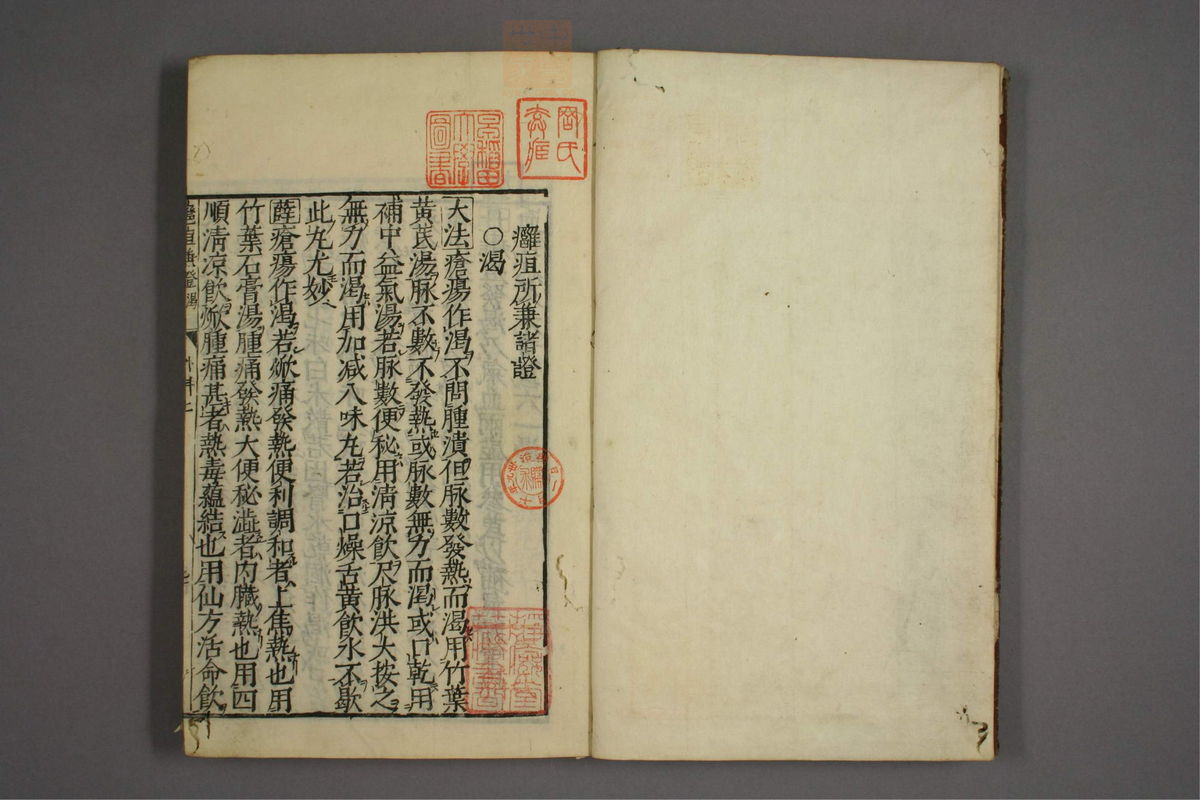 癰疽所兼諸證
○渴
大法瘡瘍作渴不問腫潰但脉數發熱而渴用竹葉
黃芪湯脉不數不發熱或脉數無力而渴或口乾用
補中益氣湯若脉數便秘用清凉飲尺脉洪大按之
無力而渴用加减八味丸若治口燥舌黃飲水不歇
此丸尤妙
薛瘡瘍作渴若焮痛發熱便利調和者上焦熱也用
竹葉石膏湯腫痛發熱大便秘澁者内臟熱也用四
順清凉飲焮腫痛甚者熱毒蘊結也用仙方活命飲
早稻田大學圖書